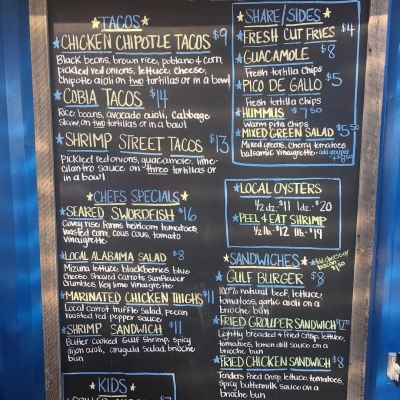 TACOS
CHICKEN CHIPOTLE TACOS $9
Black beans, brown rice, poblano & corn,
pickled red onions, lettuce, cheese,
chipotle aioli on two tortillas or in a bowl
COBIA TACOS $14
Rice, beans, avocado aioli, cabbage
slaw on two tortillas or in a bowl
SHRIMP STREET TACOS $13
Pickled red onions, guacamole, lime-
cilantro sauce on three tortillas or
in a bowl
CHEFS SPECIALS
SEARED SWORDFISH $16
Covey rise Farms heirloom tomatoes,
roasted corn, cous cous, tomato
vinaigrette
LOCAL ALABAMA SALAD $8
Mizuna lettuce, blackberries, blue
cheese, shaved carrots, sunflower
crumbles, key lime vinaigrette
MARINATED CHICKEN THIGHS $11
Local carrot truffle salad, pecan
roasted red pepper sauce
SHRIMP SANDWICH $11
Butter cooked Gulf shrimp, spicy
dijon aioli, arugula salad, brioche
bun
KIDS
SHARE/SIDES
FRESH CUT FRIES $4
GUACAMOLE $8
Fresh tortilla chips
PICO DE GALLO $5
Fresh tortilla chips
HUMMUS $7.50
Warm pita chips
MIXED GREEN SALAD $5.50
Mixed greens, cherry tomatoes,
balsamic vinaigrette - add grouper
LOCAL OYSTERS
1/2 dz. $11 1dz. $20
PEEL & EAT SHRIMP
1/2 lb. $12 1lb. $19
SANDWICHES
GULF BURGER $8
100% natural beef, lettuce,
tomatoes, garlic aioli on a
brioche bun
FRIED GROUPER SANDWICH
Lightly breaded & fried crisp, lettuce,
tomatoes, lemon dill sauce on a
brioche bun
FRIED CHICKEN SANDWICH $8
Tenders fried crisp, lettuce, tomatoes,
spicy buttermilk sauce on a
brioche bun